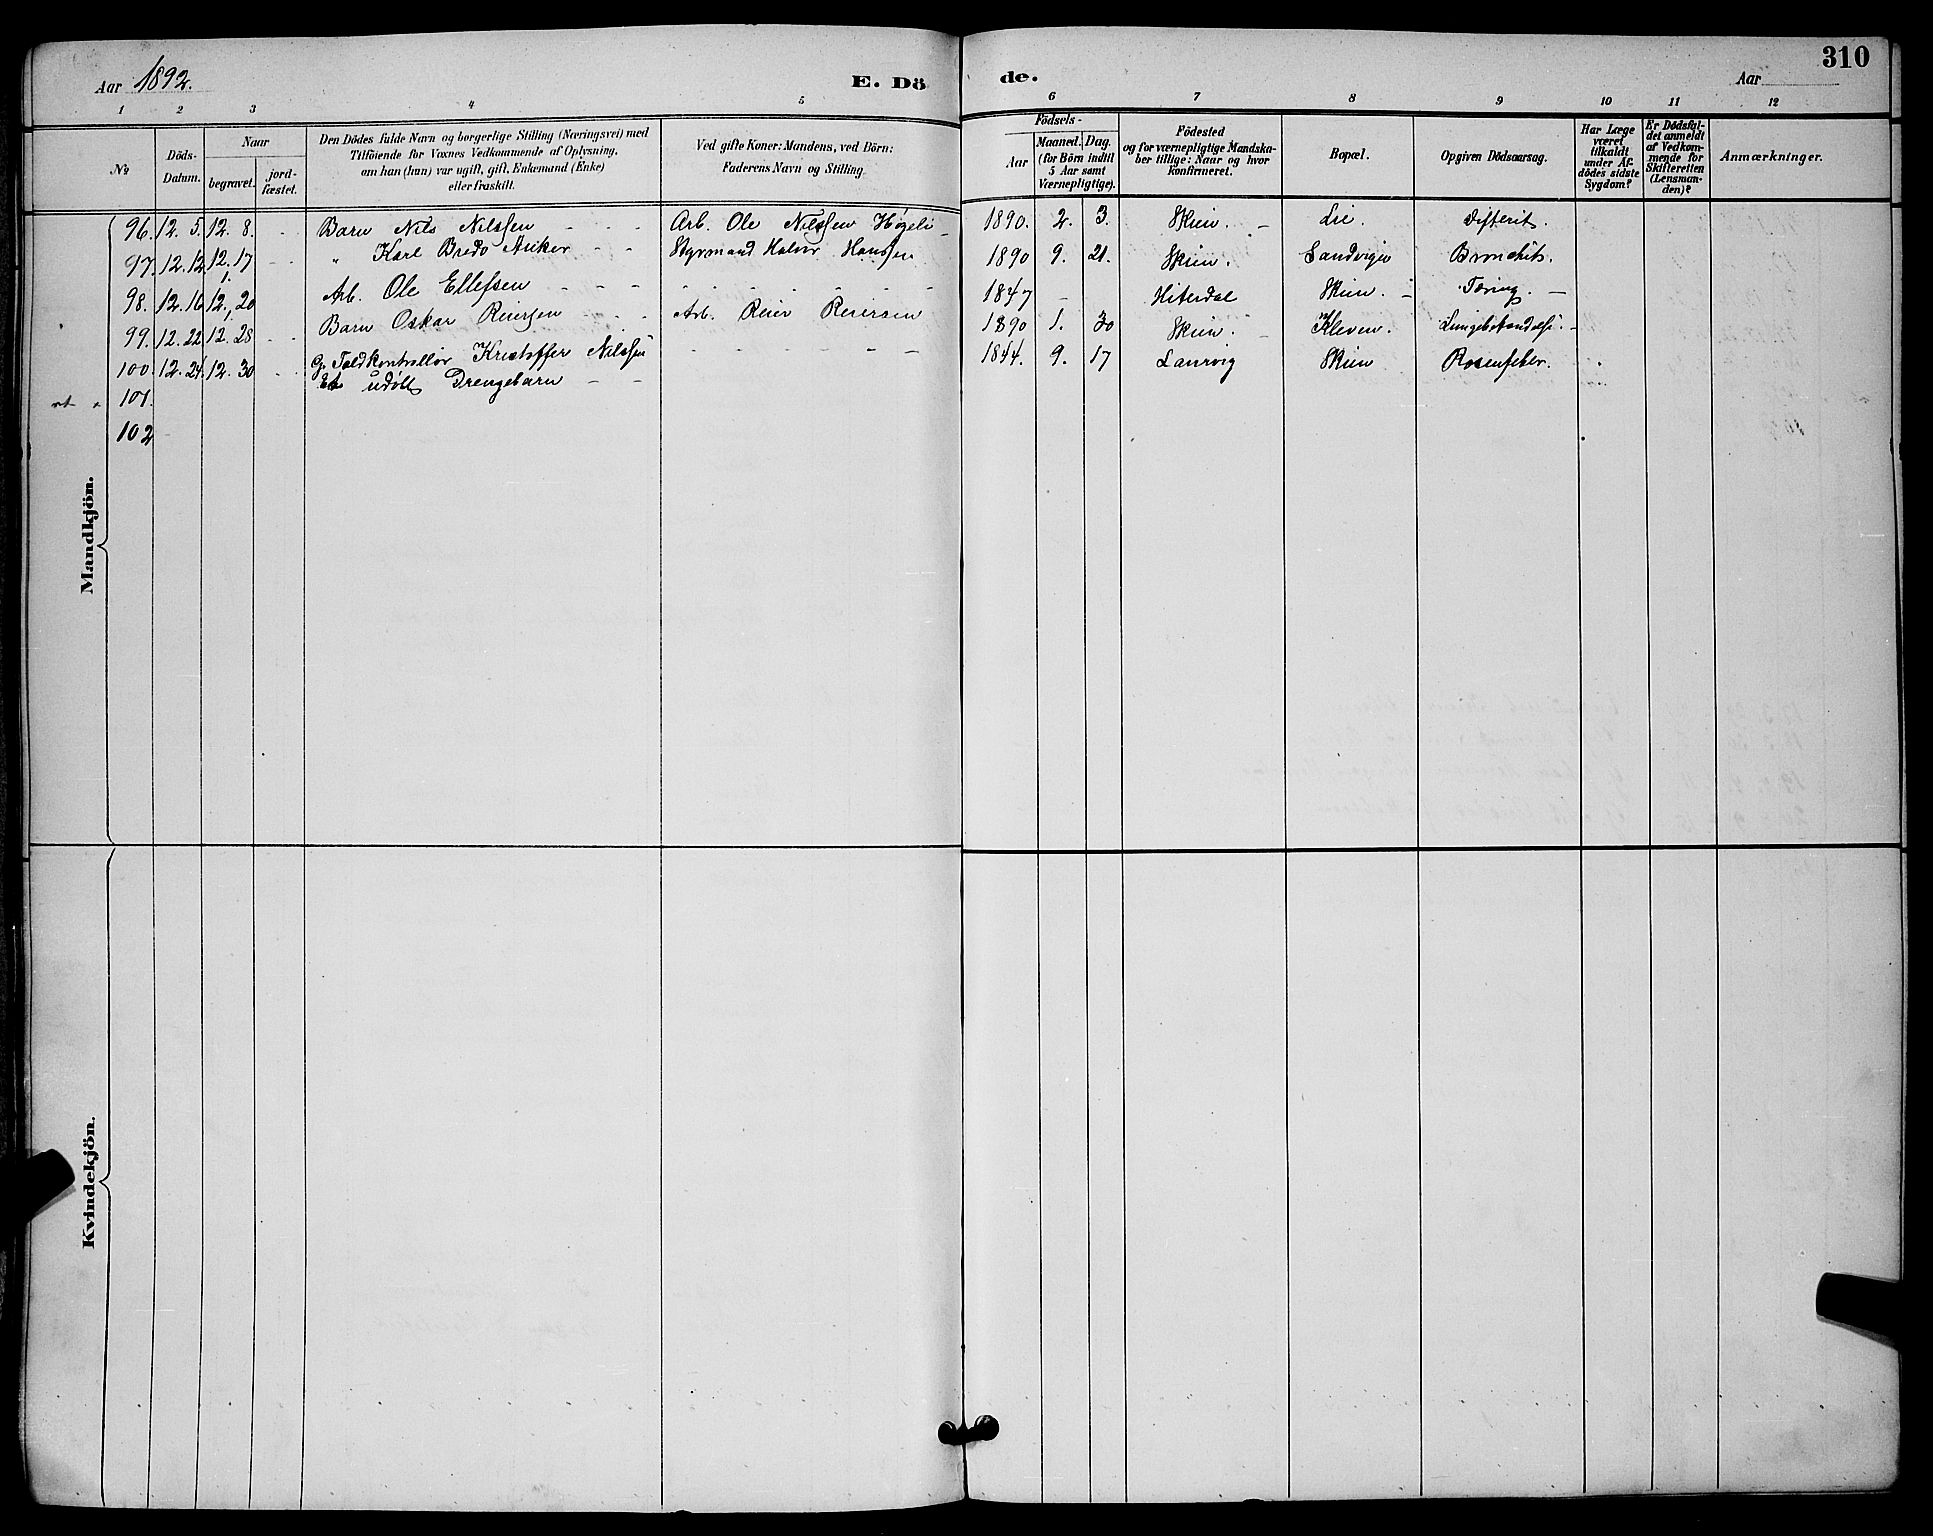 Aar 1892. E. Dö de. Aar 310
1 2 3 4 5 6 7 8 9 10 11 12
No Döds-Datum. Naar begravet. jord-fæstet. Den Dödes fulde Navn og borgerlige Stilling (Næringsvei) med Tilföiende for Voxnes Vedkommende af Oplysning, om han (hun) var ugift, gift, Enkemand (Enke) eller fraskilt. Ved gifte Koner: Mandens, ved Börn: Faderens Navn og Stilling. Födsels- Aar Maaned. Dag. (for Börn indtil 5 Aar samt Værnepligtige). Födested og for værnepligtige Mandskaber tillige: Naar og hvor konfirmeret. Bopæl. Opgiven Dödsaarsag. Har Læge været tilkaldt under Afdödes sidste Sygdom? Er Dödsfaldet anmeldt af Vedkommende for Skifteretten (Lensmanden)? Anmærkninger.
Mandkjön.
96. 12. 5. 12. 8. Barn Nils Nilssen Arb. Ole Nilssen Høgeli 1890. 2. 3. Skien. Lie. Difterit.
97. 12. 12. 12. 17 " Karl Bredo Anker Styrmand Halvor Hanssen 1890 9. 21. Skien. Sandvigen Bronchits.
98. 12. 16 12. 20 Arb. Ole Ellefsen 1847 Hiterdal Skien. Tæring.
99. 12. 22 12. 28 Barn Oskar Reiersen Arb. Reier Reiersen 1890 1. 30 Skien. Kleven.
100. 12. 24. 12. 30 G. Toldkontrollør Kristoffer Nilssen 1844. 9. 17 Laurvig Skien Rosenfeber.
101. Et udøbt Drengebarn
102
Kvindekjön.